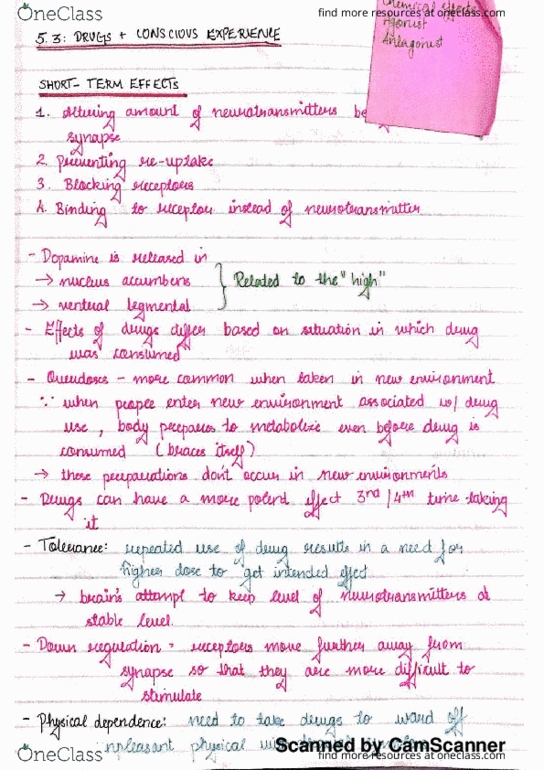 OneClass
find more resources at oneclass.com
Chemical effects
Agonist
Antagonist
5.3: DRUGS + CONSCIOUS EXPERIENCE
SHORT-TERM EFFECTS
1. Altering amount of neurotransmitters
synapse
2. Preventing re-uptake
3. Blocking receptors
4. Binding to receptor instead of neurotransmitter
- Dopamine is released in
→ nucleus accumbens
→ ventral tegmental
Related to the "high"
- Effects of drugs differ based on situation in which drug
was consumed
- Overdoses - more common when taken in new environment
∵ when people enter new environment associated w/ drug
use, body prepares to metabolize even before drug is
consumed (braces itself)
→ these preparations don't occur in new environments
- Drugs can have a more potent effect 3rd/4th time taking
it
- Tolerance: repeated use of drug results in a need for
higher dose to get intended effect
→ brain's attempt to keep level of neurotransmitters at
stable level
- Down regulation = receptors move further away from
synapse so that they are more difficult to
stimulate
- Physical dependence: need to take drugs to ward off
unpleasant physical
Scanned by CamScanner
OneClass
find more resources at oneclass.com